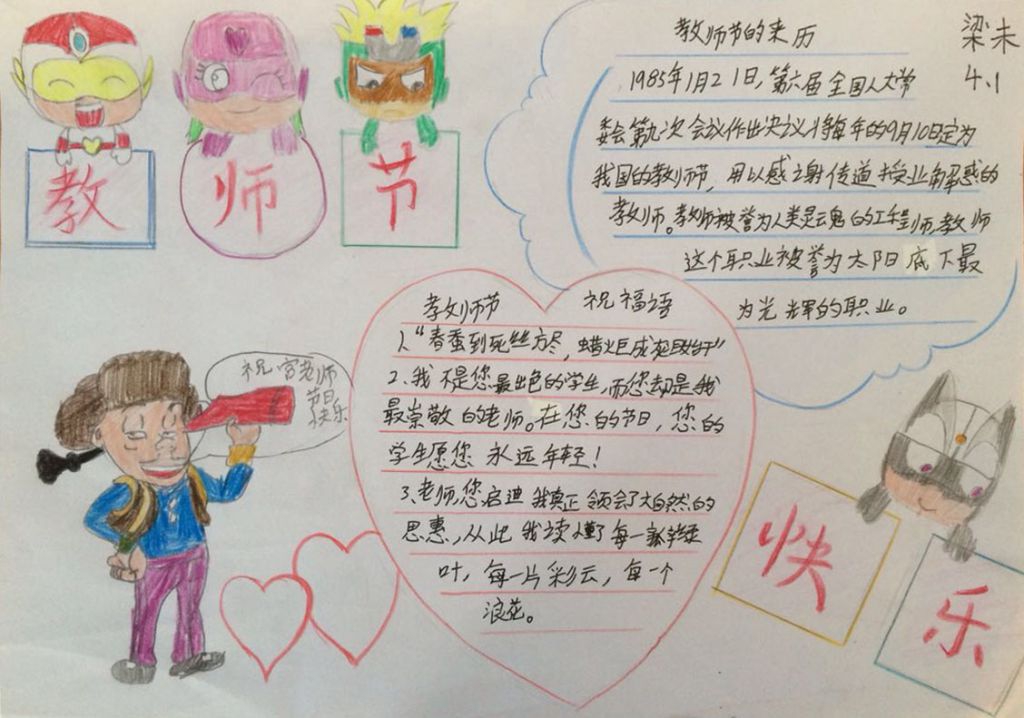 教师节
教师节的来历
梁未
4.1
1985年1月21日，第六届全国人大常
委会第九次会议作出决议，将每年的9月10日定为
我国的教师节，用以感谢传道授业解惑的
教师。教师被誉为人类灵魂的工程师，教师
这个职业被誉为太阳底下最
为光辉的职业。
教师节 祝福语
1、“春蚕到死丝方尽，蜡炬成灰泪始干”
2、我不是您最出色的学生，而您却是我
最崇敬的老师。在您的节日，您的
学生愿您永远年轻！
3、老师，您启迪我真正领会了大自然的
思惠，从此我读懂了每一瓢绿
叶，每一片彩云，每一个
浪花。
祝宫老师
节日
快乐
快
乐